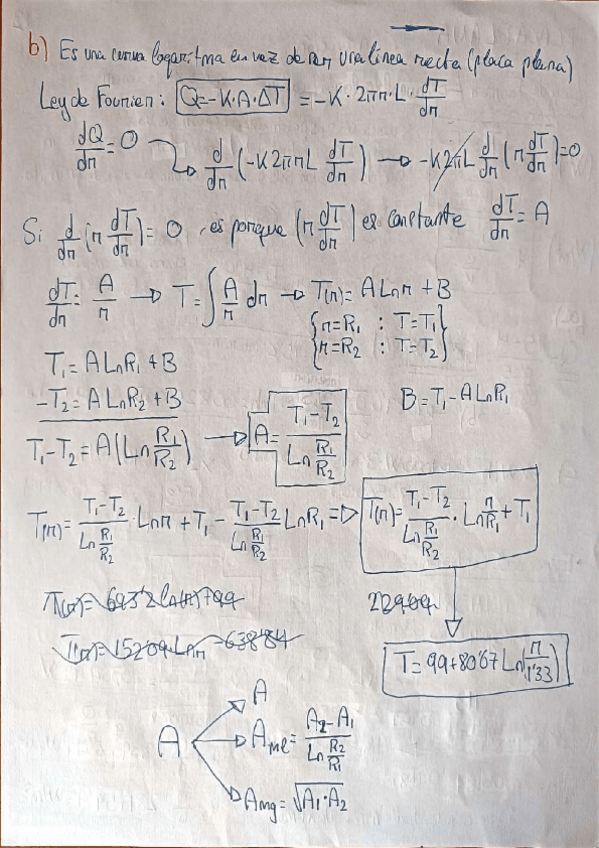 b) Es una curva logaritma en vez de ser una línea recta (placa plana)
Ley de Fourier: Q=-K·A·ΔT = -K·2πr·L·dT/dr
dQ/dr=0 → d/dr(-K2πrL dT/dr) → -K2πL d/dr(r dT/dr)=0
Si d/dr(r dT/dr)=0, es porque (r dT/dr) es constante dT/dr=A
dT/dr=A/r → T=∫A/r dr → T(r)=A Ln r+B
{r=R₁ : T=T₁
r=R₂ : T=T₂}
T₁=A LnR₁+B
-T₂=A LnR₂+B
B=T₁-A LnR₁
T₁-T₂=A(Ln R₁/R₂) → A=(T₁-T₂)/(Ln R₁/R₂)
T(r)=(T₁-T₂)/(Ln R₁/R₂)·Ln r+T₁-(T₁-T₂)/(Ln R₁/R₂) LnR₁ => T(r)=(T₁-T₂)/(Ln R₁/R₂)·Ln r/R₁+T₁
T=99+80'67 Ln(r/1'33)
A
A
A_ml=(A₂-A₁)/(Ln R₂/R₁)
A_mg=√A₁·A₂